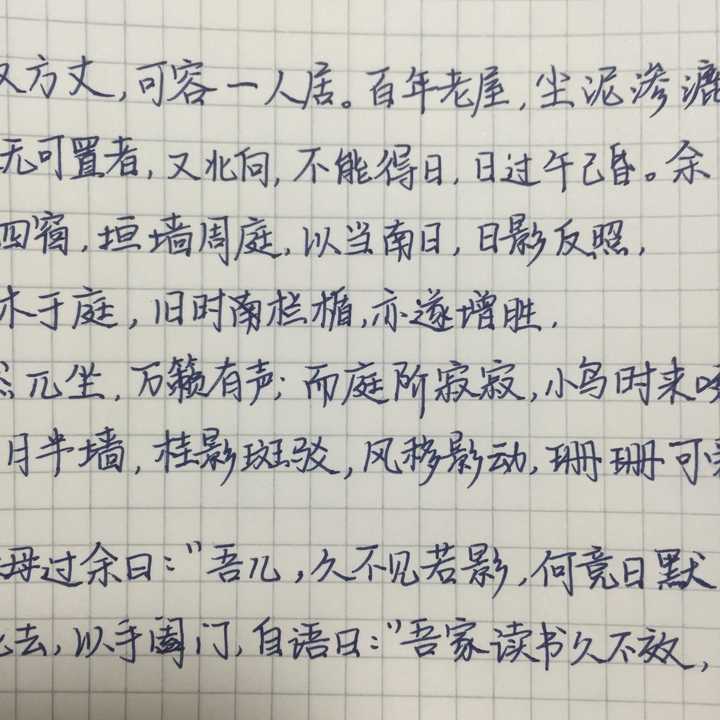 方丈，可容一人居。百年老屋，尘泥渗漉
无可置者，又北向，不能得日，日过午已昏。余
四窗，垣墙周庭，以当南日，日影反照，
木于庭，旧时南栏楯，亦遂增胜.
兀坐，万籁有声；而庭阶寂寂，小鸟时来
月半墙，桂影斑驳，风移影动，珊珊可
母过余曰："吾儿，久不见若影，何竟日默
去，以手阖门，自语曰："吾家读书久不效，